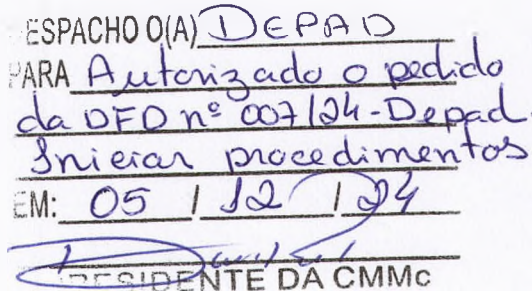 ESPACHO O(A) DEPAD
PARA Autorizado o pedido
da DFD nº 007/24-Depad.
Iniciar procedimentos
EM: 05 / 12 / 24
PRESIDENTE DA CMMc